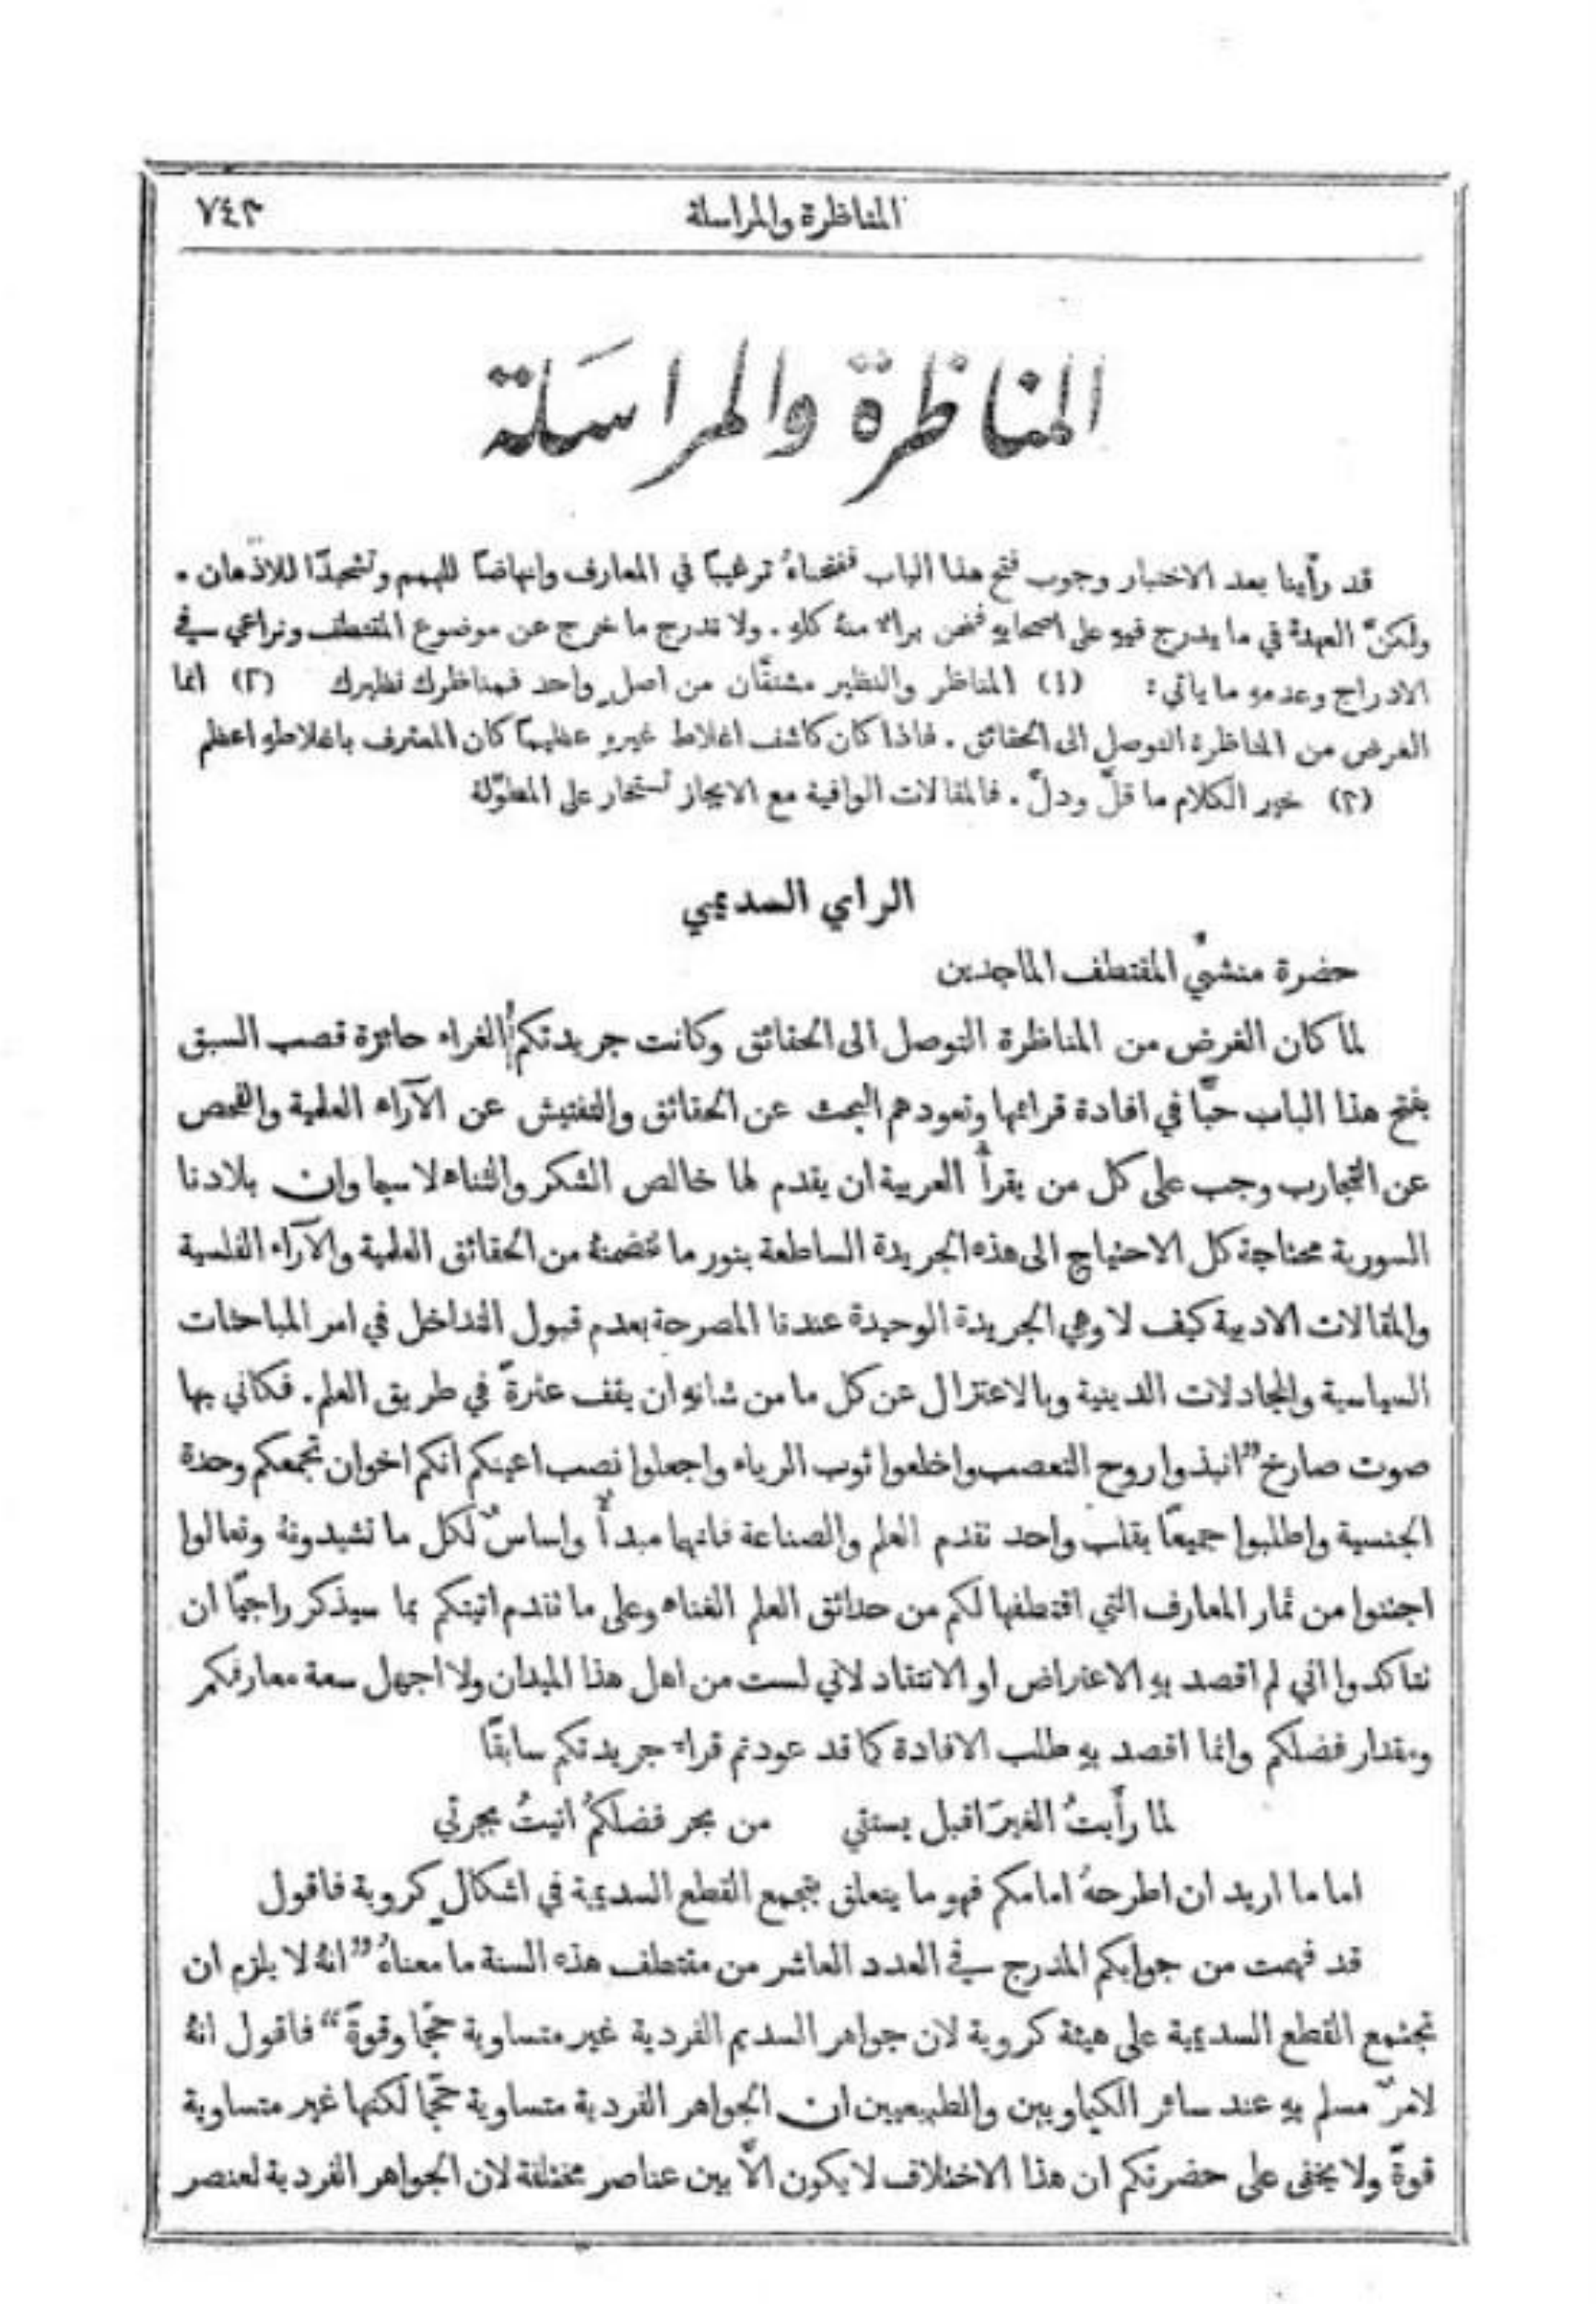 المناظرة والمراسلة ٧٤٣
المناظرة والمراسَلة
قد رأينا بعد الاختبار وجوب فتح هذا الباب ففتحناهُ ترغيبًا في المعارف وانهاضًا للهمم وتشحيذًا للاذهان .
ولكنَّ العهدة في ما يدرج فيهِ على اصحابهِ فنحن براءٌ منهُ كلهِ . ولا ندرج ما خرج عن موضوع المقتطف ونراعي في
الادراج وعدمهِ ما ياتي : (١) المناظر والنظير مشتقَّان من اصلٍ واحد فمناظرك نظيرك (٢) انما
الغرض من المناظرة التوصل الى الحقائق . فاذا كان كاشف اغلاط غيرهِ عظيمًا كان المعترف باغلاطهِ اعظم
(٣) خير الكلام ما قلَّ ودلَّ . فالمقالات الوافية مع الايجاز تستخار على المطوَّلة
الراي السديمي
حضرة منشئَي المقتطف الماجدين
لما كان الغرض من المناظرة التوصل الى الحقائق وكانت جريدتكم الغراء حائزة قصب السبق
بفتح هذا الباب حبًّا في افادة قرائها وتعودهم البحث عن الحقائق والتفتيش عن الآراء العلمية والفحص
عن التجارب وجب على كل من يقرأُ العربية ان يقدم لها خالص الشكر والثناء لا سيما وان بلادنا
السورية محتاجة كل الاحتياج الى هذه الجريدة الساطعة بنور ما تتضمنهُ من الحقائق العلمية والآراء الفلسية
والمقالات الادبية كيف لا وهي الجريدة الوحيدة عندنا المصرحة بعدم قبول التداخل في امر المباحثات
السياسية والمجادلات الدينية وبالاعتزال عن كل ما من شانهِ ان يقف عثرةً في طريق العلم . فكاني بها
صوت صارخ "انبذوا روح التعصب واخلعوا ثوب الرياء واجعلوا نصب اعينكم انكم اخوان تجمعكم وحدة
الجنسية واطلبوا جميعًا بقلب واحد تقدم العلم والصناعة فانهما مبدأٌ واساسٌ لكل ما تشيدونهُ وتعالوا
اجتنوا من ثمار المعارف التي اقتطفها لكم من حدائق العلم الغناء وعلى ما تقدم اتيتكم بما سيذكر راجيًا ان
تتاكدوا اني لم اقصد بهِ الاعتراض او الانتقاد لاني لست من اهل هذا الميدان ولا اجهل سعة معارفكم
ومقدار فضلكم وانما اقصد بهِ طلب الافادة كما قد عودتم قراء جريدتكم سابقًا
لما رأَيتُ الغيرَ اقبل يستقي من بحر فضلكمُ اتيتُ بجرتي
اما ما اريد ان اطرحهُ امامكم فهو ما يتعلق بتجمع القطع السديمية في اشكالٍ كروية فاقول
قد فهمت من جوابكم المندرج في العدد العاشر من مقتطف هذه السنة ما معناهُ "انهُ لا يلزم ان
تجتمع القطع السديمية على هيئة كروية لان جواهر السديم الفردية غير متساوية حجمًا وقوةً" فاقول انهُ
لامرٌ مسلم بهِ عند سائر الكياويين والطبيعيين ان الجواهر الفردية متساوية حجمًا لكنها غير متساوية
قوةً ولا يخفى على حضرتكم ان هذا الاختلاف لا يكون الَّا بين عناصر مختلفة لان الجواهر الفردية لعنصر